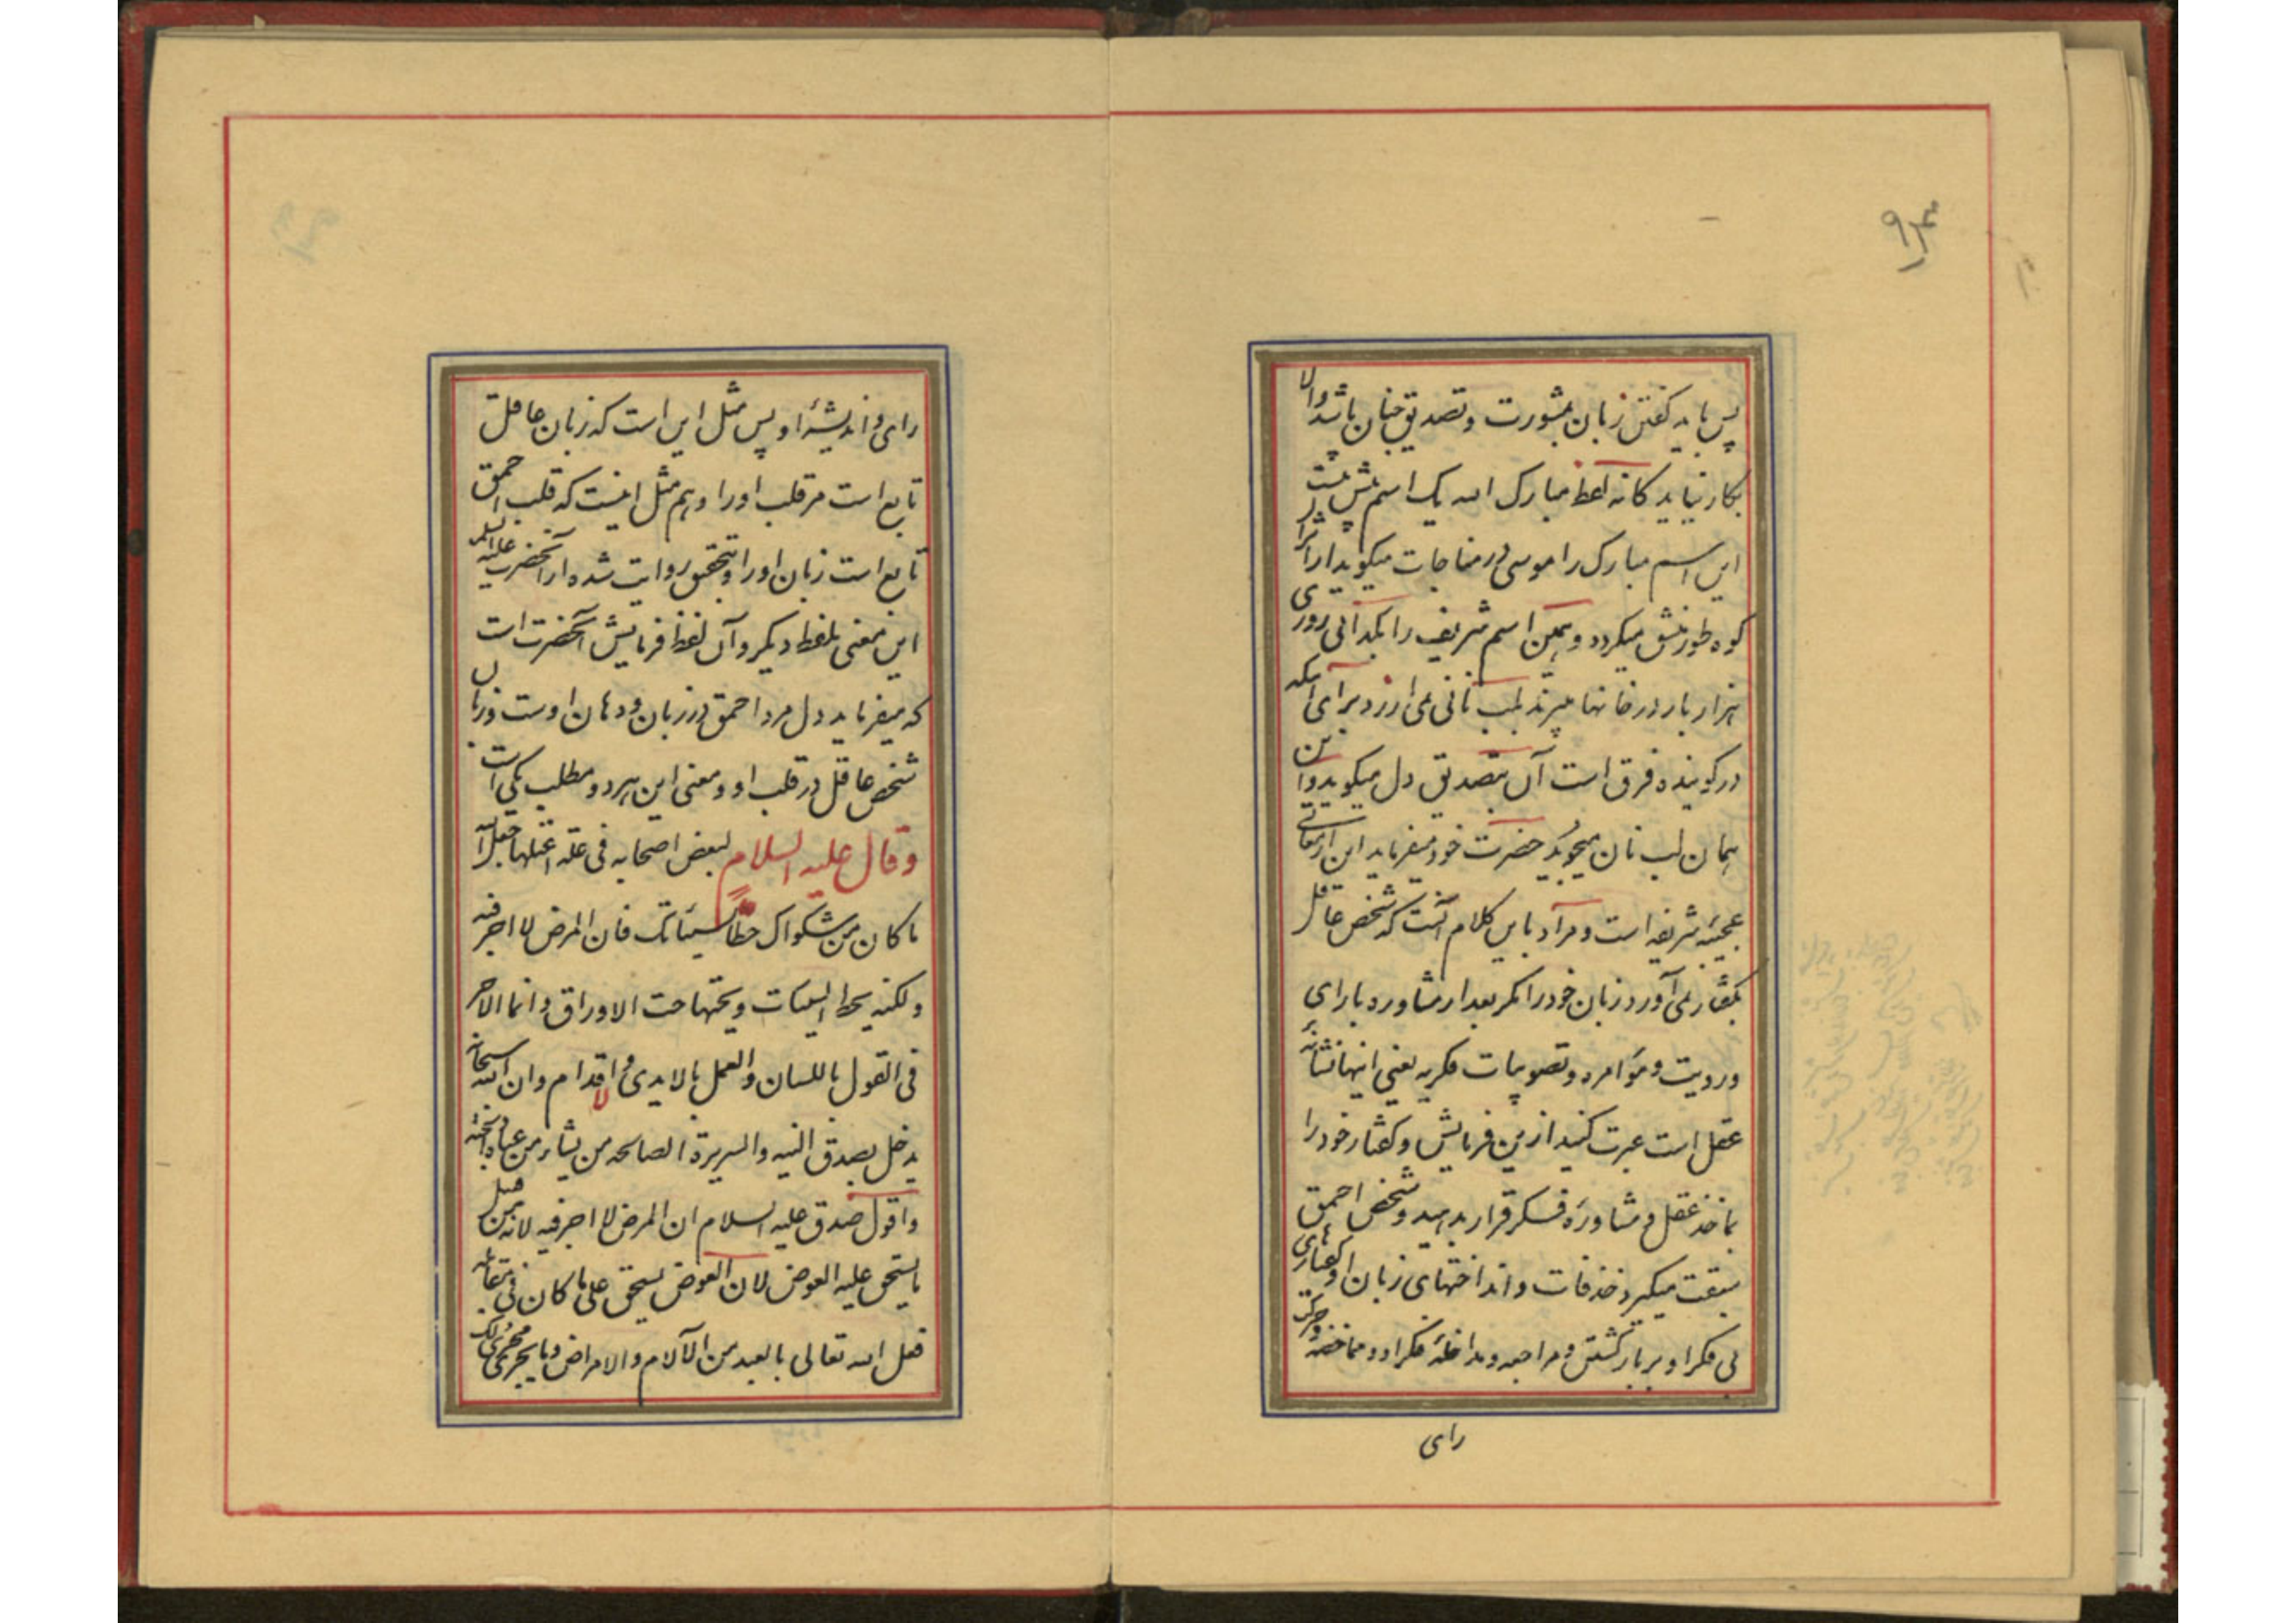 ۹۳
پس باید گفتن زبان بمشورت و تصدیق جنان باشد والا
بکار نیاید کانه لفظ مبارک الله یک اسم بیش نیست
این اسم مبارک را موسی در مناجات میگوید از اثر
کوه طور منشق میگردد و همین اسم شریف را گدائی روزی
هزار بار در خانها میبرد لب نانی نمی ارزد برای اینکه
در گوینده فرق است آن بتصدیق دل میگوید و این
همان لب نان میجوید حضرت خود میفرماید این از معانی
عجیبه شریفه است و مراد باین کلام آنست که شخص عاقل
بگفتار نمی آورد زبان خود را مگر بعد از مشاوره با رای
و رویت و مؤامره و تصویبات فکریه یعنی اینها نشانه
عقل است عبرت کنید از من فرمایش و گفتار خود را
بماخذ عقل و مشاوره فکر قرار بدهید و شخص احمق
سبقت میگیرد حذفات و انداختهای زبان او و گفتارهای
بی فکر او بر بازگشتن و مراجعه و مداخله فکر او و مماخضه و حرکت
رای
رای و اندیشۀ او پس مثل این است که زبان عاقل
تابع است مر قلب او را و هم مثل اینست که قلب احمق
تابع است زبان او را و بتحقیق روایت شده از آنحضرت علیه السلام
این معنی بلفظ دیگر و آن لفظ فرمایش آنحضرت است
که میفرماید دل مرد احمق در زبان و دهان اوست و زبان
شخص عاقل در قلب او و معنی این هر دو مطلب یکی است
وقال علیه السلام لبعض اصحابه فی علة اعتلها جعل الله
ما کان من شکواک حطاً لسیئاتک فان المرض لا اجر فیه
ولکنه یحط السیئات ویحتها حت الاوراق وانما الاجر
فی القول باللسان والعمل بالایدی والاقدام وان الله سبحانه
یدخل بصدق النیه والسریرة الصالحه من یشاء من عباده الجنه
واقول صدق علیه السلام ان المرض لا اجر فیه لانه من قبیل
ما یستحق علیه العوض لان العوض یستحق علی ما کان فی مقابله
فعل الله تعالی بالعبد من الآلام والامراض وما یجری مجری ذلک